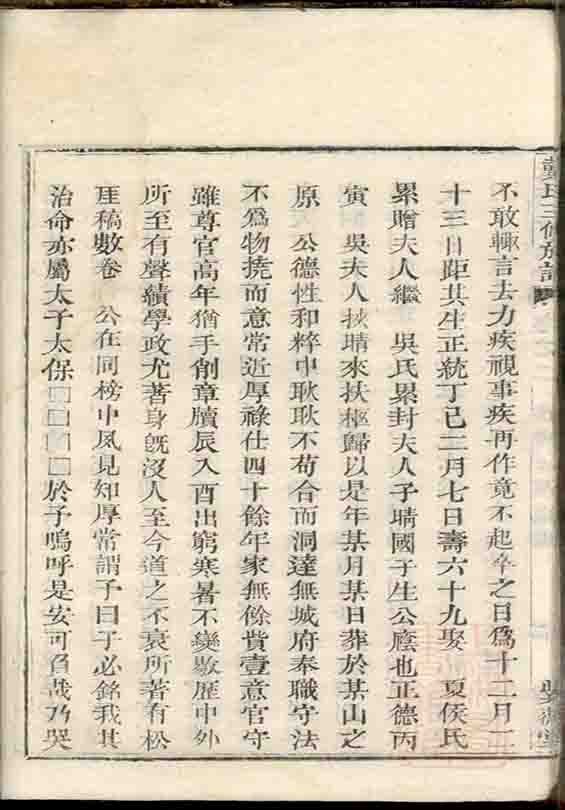 戴氏三修族譜
不敢輙言去力疾視事疾再作竟不起卒之日爲十二月二
十三日距其生正統丁巳二月七日壽六十九娶　夏侯氏
累贈夫人繼　吳氏累封夫人子晴國子生公廕也正德丙
寅　吳夫人挾晴來扶柩歸以是年某月某日葬於某山之
原　公德性和粹中耿耿不苟合而洞達無城府奉職守法
不爲物撓而意常近厚祿仕四十餘年家無餘貲壹意官守
雖尊官高年猶手創章牘辰入酉出窮寒暑不變敭歷中外
所至有聲績學政尤著身旣沒人至今道之不衰所著有松
厓稿數卷　公在同榜中夙見知厚常謂予曰子必銘我其
治命亦屬太子太保□□□□於予嗚呼是安可負哉乃哭